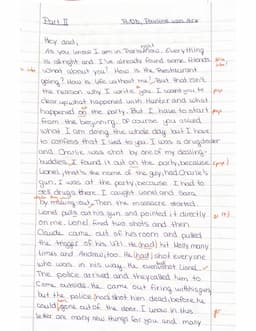 Part II
Hey dad,
As you know I am in Paris now. Everything
is alright and I've already found some friends.
What about you? How is the Restaurant
going? How is life without me? But that isn't
the reason why I write you. I want you to
clear up what happened with Hunter and what
happened on the party. But I have to start
from the beginning. Of course you asked
what I am doing the whole day but I have
to confess that I lied to you. I was a drugdealer
and Charlie was shot by one of my dealing-
buddies. I found it out on the party, because
Lionel, that's the name of the guy, had Charlie's
gun, I was at the party, because I had to
get drugs there. I caught Lionel and Sara
by making out. Then the massacre started.
Lionel pulls out his gun and pointed it directly
on me. Lionel fired two shots and then
Claude came out of his room and pulled
the trigger of his Uzi. He (had) hit Molly many
times and Andrew, too. He (had) shot everyone
who was in his way. He even shot Lionel.
The police arrived and they called him to
come outside. He came out firing with his guns
but the police (had) shot him dead, before he
could gone out of the door. I know in this
letter are many new things for you and many